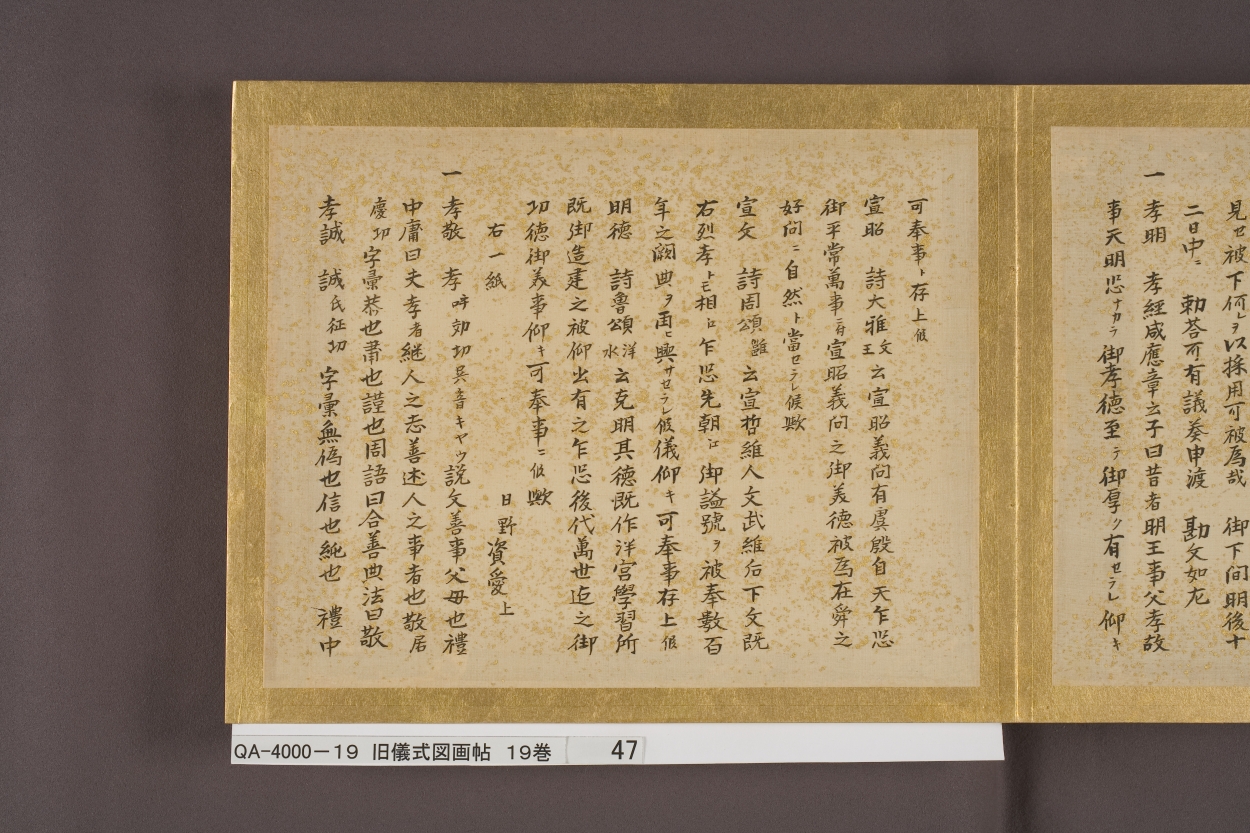 見セ被下何レヲ以採用可被為哉　御下問明後十
二日中ニ　勅荅可有議奏申渡　勘文如左
一　孝明　孝経感應章云子曰昔者明王事父孝故
事天明恐ナカラ御孝徳至テ御厚ク有セラレ仰キ
可奉事ト存上候
宣昭　詩大雅文王云宣昭義問有虞殷自天乍恐
御平常萬事ニ付宣昭義問之御美徳被為在舜之
好問ニ自然ト當セラレ候歟
宣文　詩周頌雝云宣哲維人文武維后下文既
右烈考トモ相江乍恐先朝江御謚號ヲ被奉數百
年之闕典ヲ再ヒ興サセラレ候儀仰キ可奉事存上候
明徳　詩魯頌洋水云克明其徳既作洋宮學習所
既御造建之被仰出有之乍恐後代萬世迄之御
功徳御美事仰キ可奉事ニ候歟
右一紙　日野資愛上
一　孝敬　孝呼効切呉音キヤウ説文善事父母也禮
中庸曰夫孝者継人之志善述人之事者也敬居
慶切字彙恭也肅也謹也周語曰合善典法曰敬
孝誠　誠氏征切　字彙無偽也信也純也　禮中
QA-4000-19　旧儀式図画帖　19巻　47